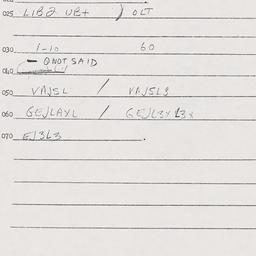 025 LIB2 UB+ ) OLT
030 1-10 60
— Q NOT SAID
040
050 VAJSL / VAJSL3
060 GEJLAYL / GEJL3X L3X
070 EJ3L3 .